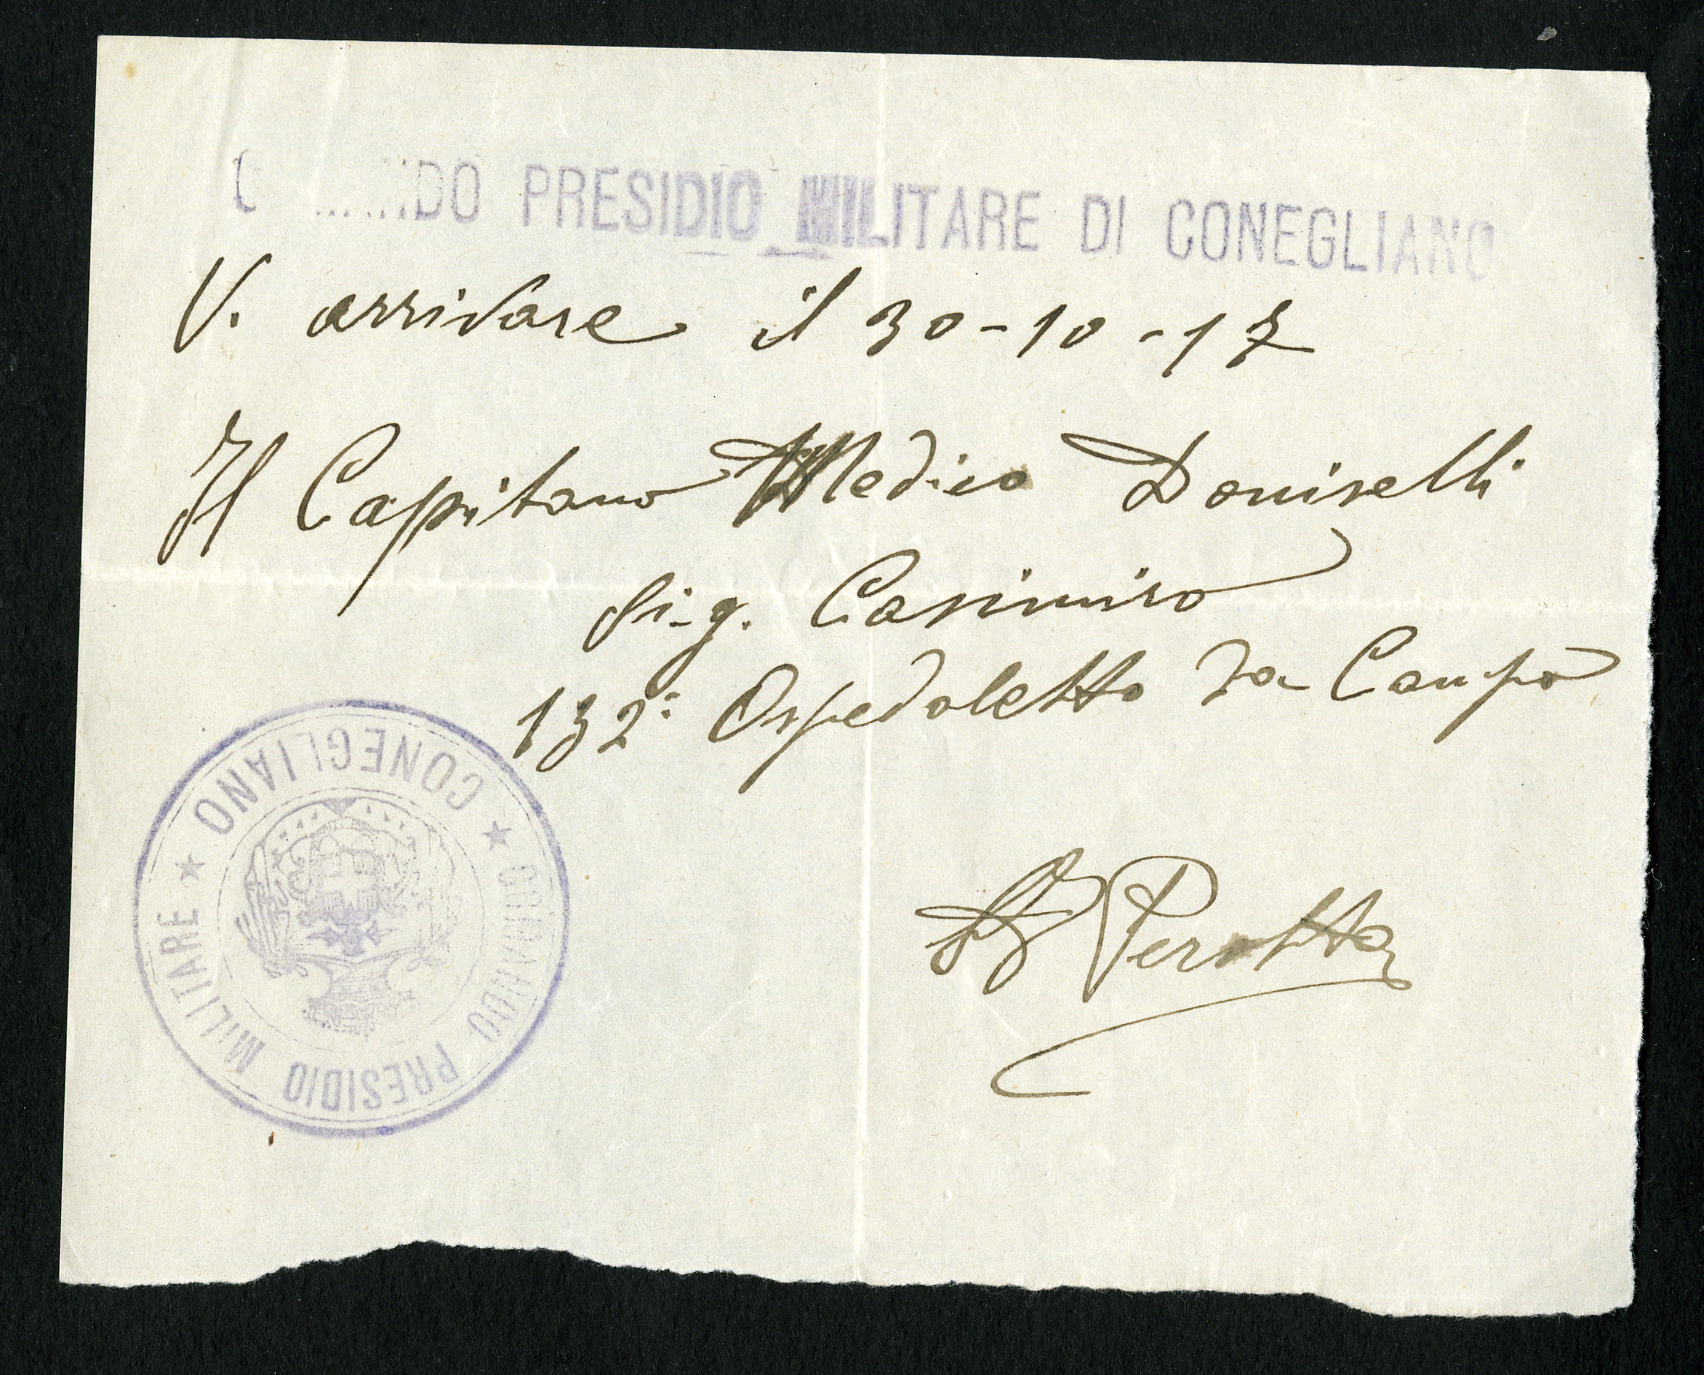 COMANDO PRESIDIO MILITARE DI CONEGLIANO
V. arrivare il 30-10-17
Il Capitano Medico Doniselli
Sig. Casimiro
132° Ospedaletto da Campo
Perotta
COMANDO PRESIDIO MILITARE ★ CONEGLIANO ★